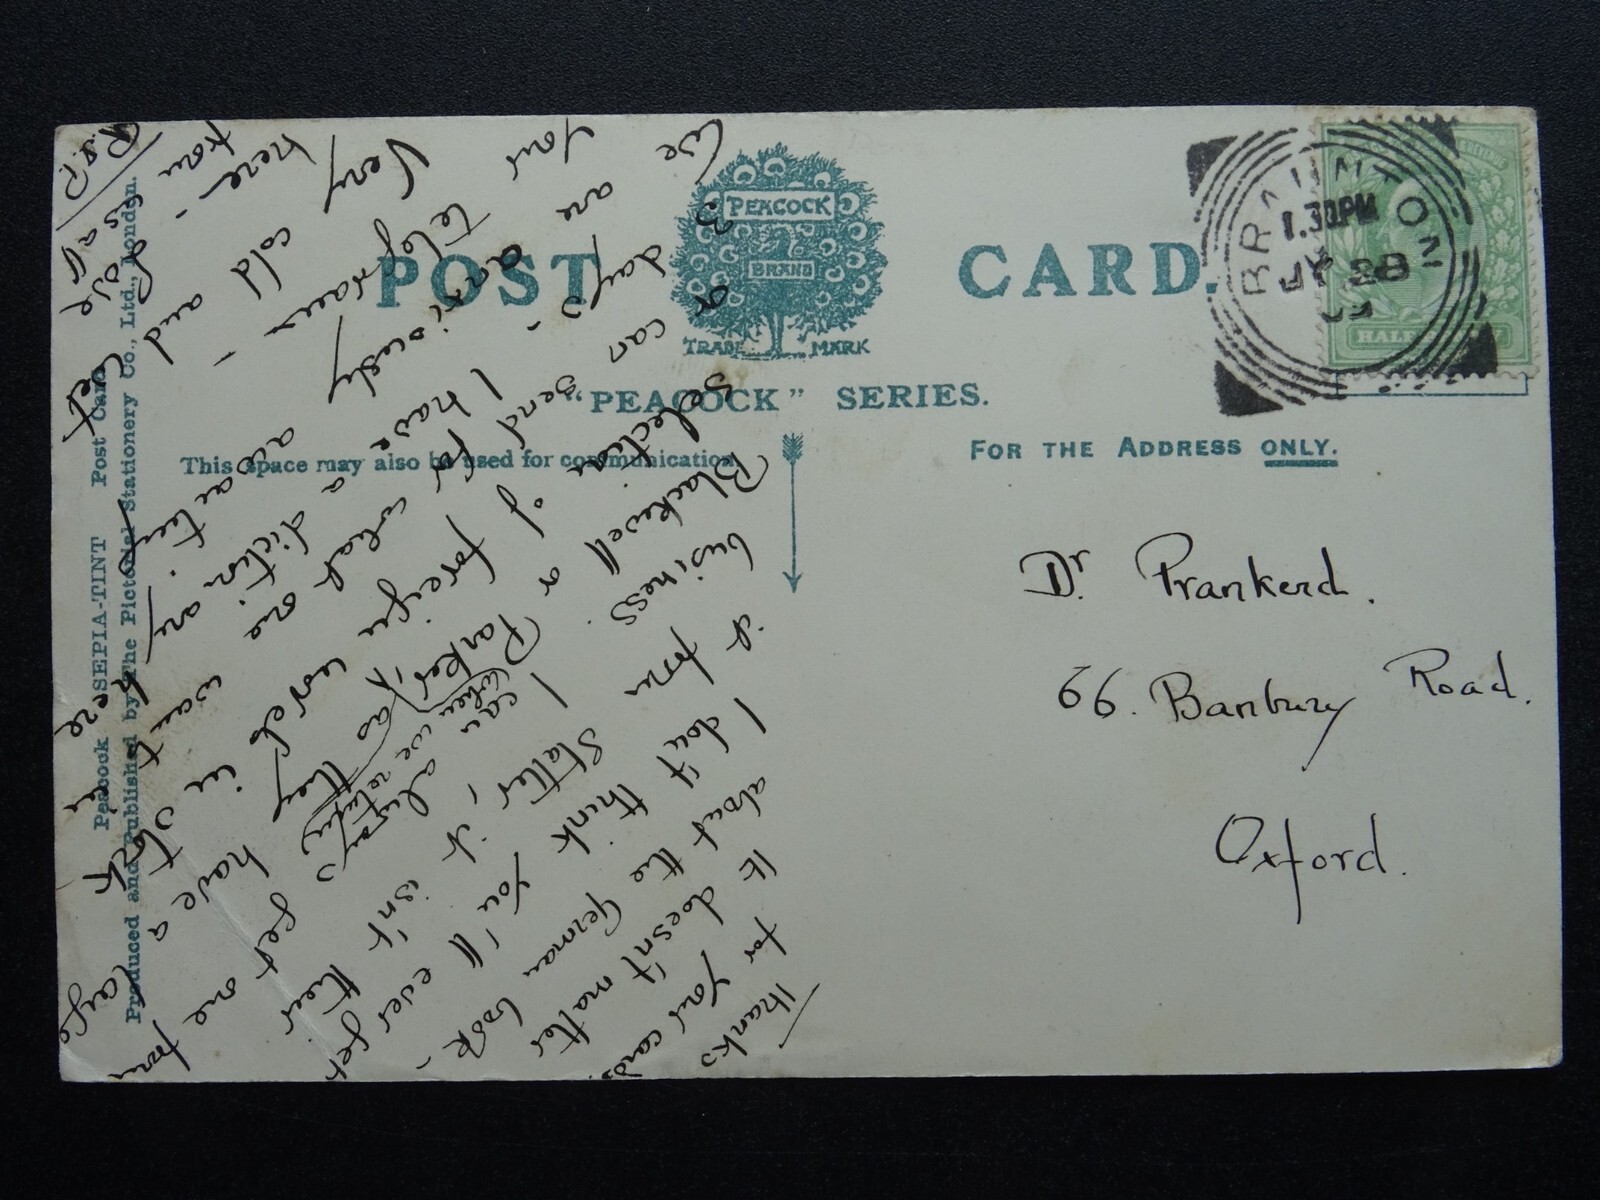 POST CARD.
PEACOCK
BRAND
TRADE MARK
"PEACOCK" SERIES.
This space may also be used for communication.
FOR THE ADDRESS ONLY.
BRIGHTON
1.30PM
JY 28
HALF
Dr. Prankerd.
66. Banbury Road.
Oxford.
Thanks
for your cards.
It doesn't matter
about the German book -
I don't think you'll ever get
it from Slatter, it isn't their
business. I can always get one from
Blackwell or Parker, (when we return) as they have a large
selection of foreign works in stock
or can send for what one wants
3 days - I have a dictionary here
We are anxiously awaiting
your telegram -
Very cold and wet
here - Love
from us all
R.S.P.
Peacock SEPIA-TINT Post Card
Produced and Published by The Pictorial Stationery Co., Ltd., London.